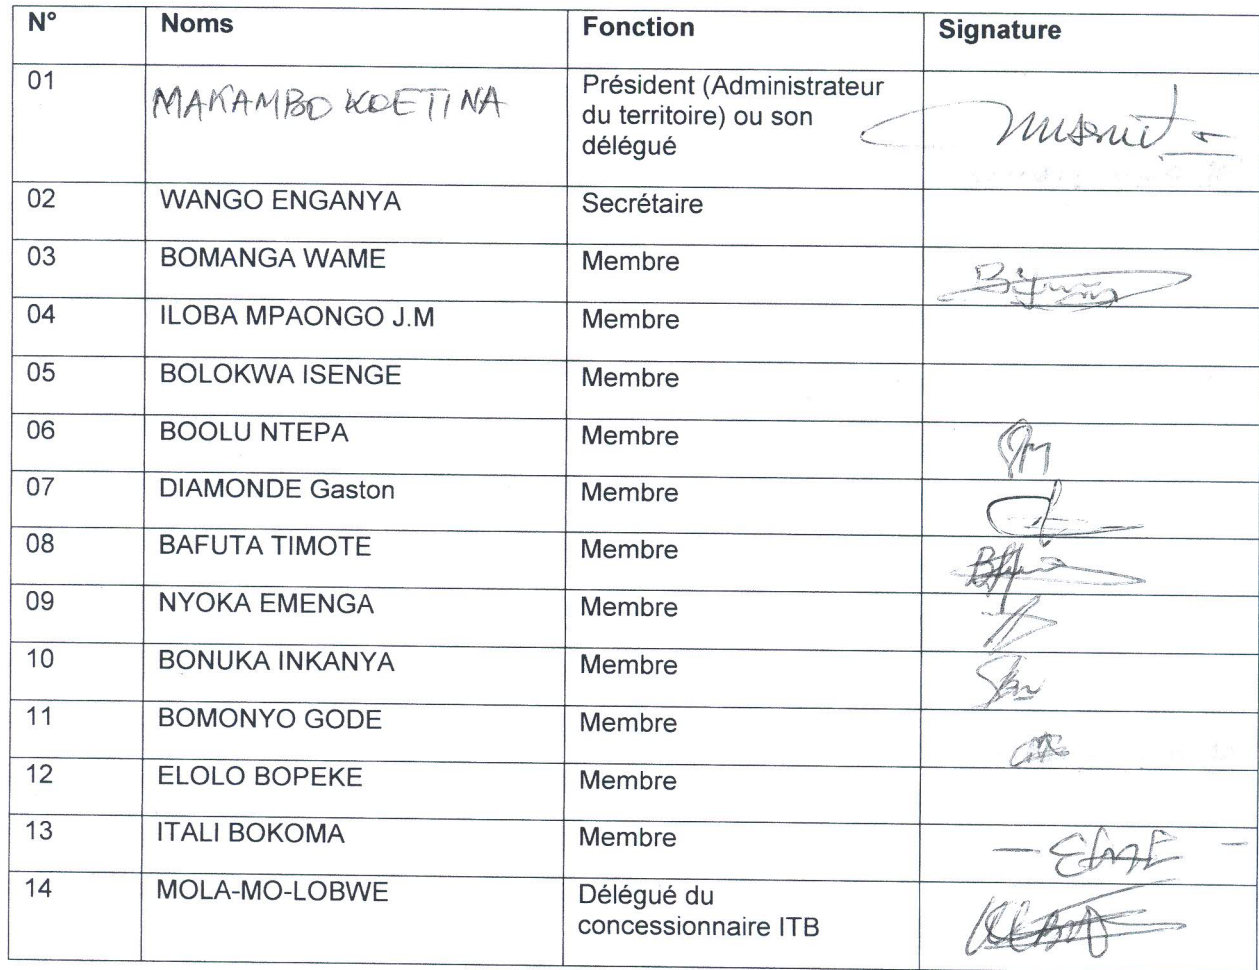 N° Noms Fonction Signature
01 MAKAMBO KOETINA Président (Administrateur
du territoire) ou son
délégué
02 WANGO ENGANYA Secrétaire
03 BOMANGA WAME Membre
04 ILOBA MPAONGO J.M Membre
05 BOLOKWA ISENGE Membre
06 BOOLU NTEPA Membre
07 DIAMONDE Gaston Membre
08 BAFUTA TIMOTE Membre
09 NYOKA EMENGA Membre
10 BONUKA INKANYA Membre
11 BOMONYO GODE Membre
12 ELOLO BOPEKE Membre
13 ITALI BOKOMA Membre
14 MOLA-MO-LOBWE Délégué du
concessionnaire ITB